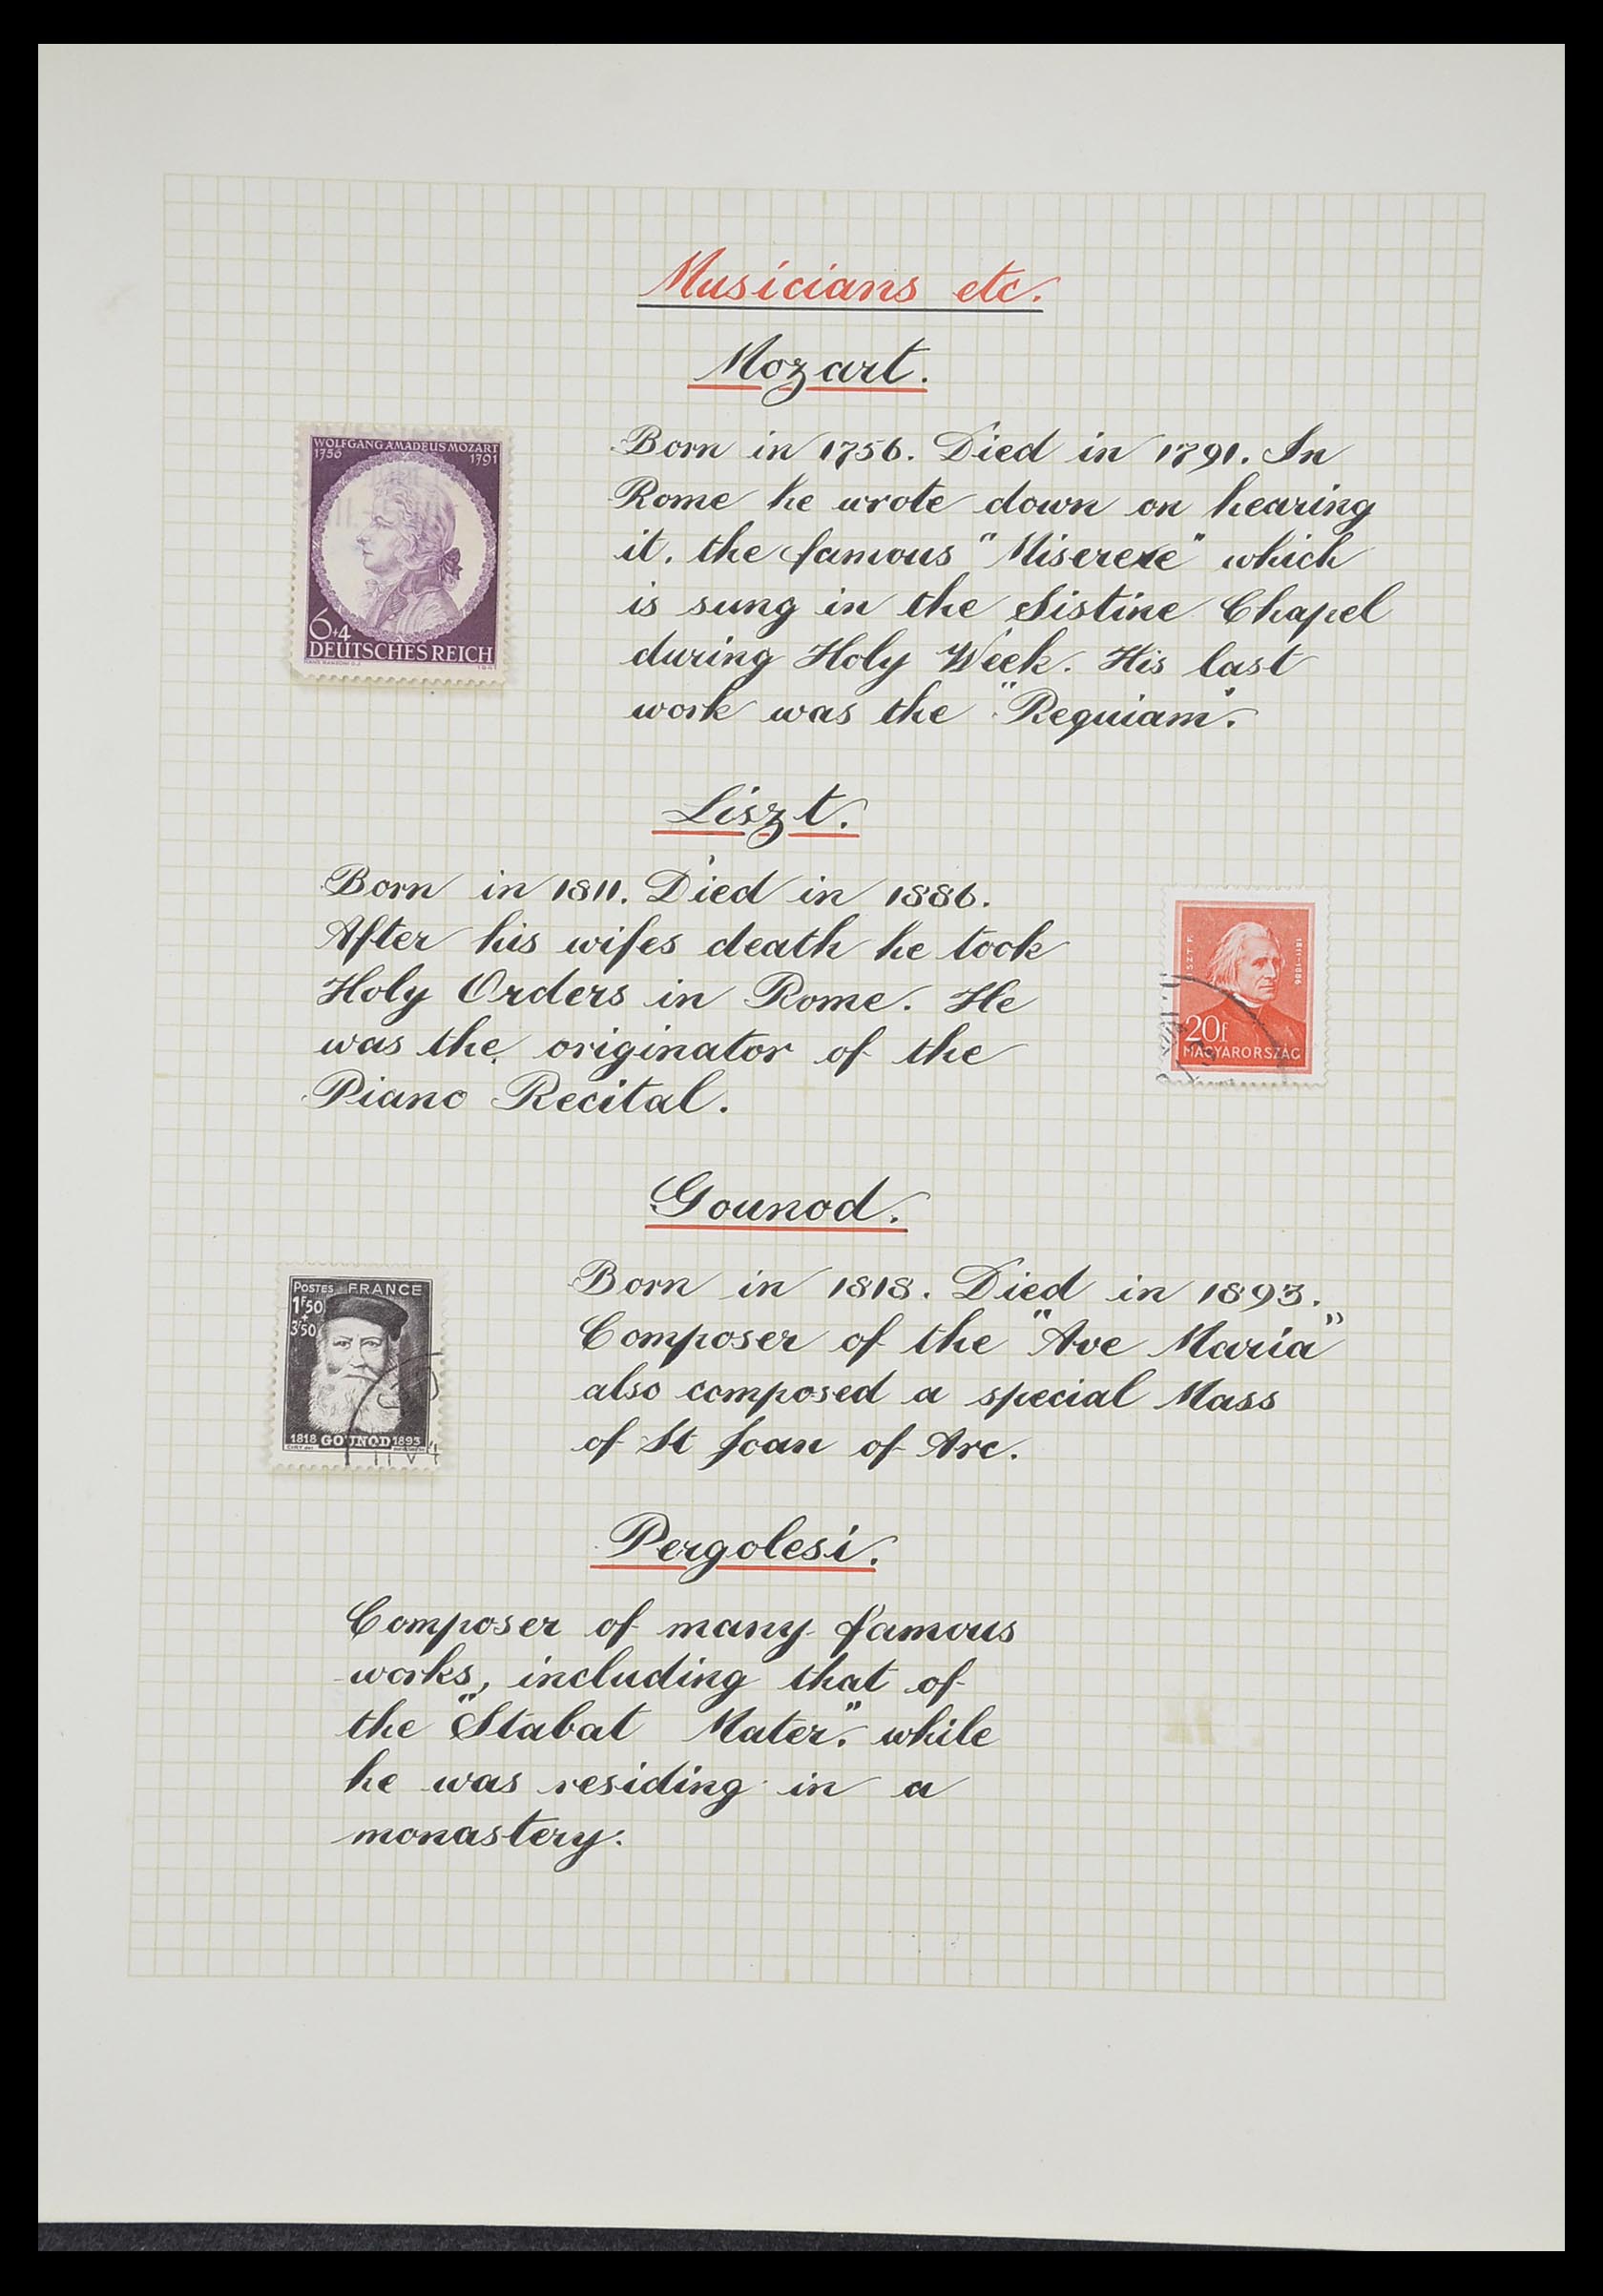 Musicians etc.
Mozart.
WOLFGANG AMADEUS MOZART
1756 1791
6+4
DEUTSCHES REICH
Born in 1756. Died in 1791. In
Rome he wrote down on hearing
it, the famous "Miserere" which
is sung in the Sistine Chapel
during Holy Week. His last
work was the "Requiam".
Liszt.
Born in 1811. Died in 1886.
After his wifes death he took
Holy Orders in Rome. He
was the originator of the
Piano Recital.
LISZT F. 1811-1886
20f
MAGYARORSZÁG
Gounod.
POSTES FRANCE
1F50
+
3F50
1818 GOUNOD 1893
Born in 1818. Died in 1893.
Composer of the "Ave Maria"
also composed a special Mass
of St Joan of Arc.
Pergolesi.
Composer of many famous
works, including that of
the "Stabat Mater." while
he was residing in a
monastery.